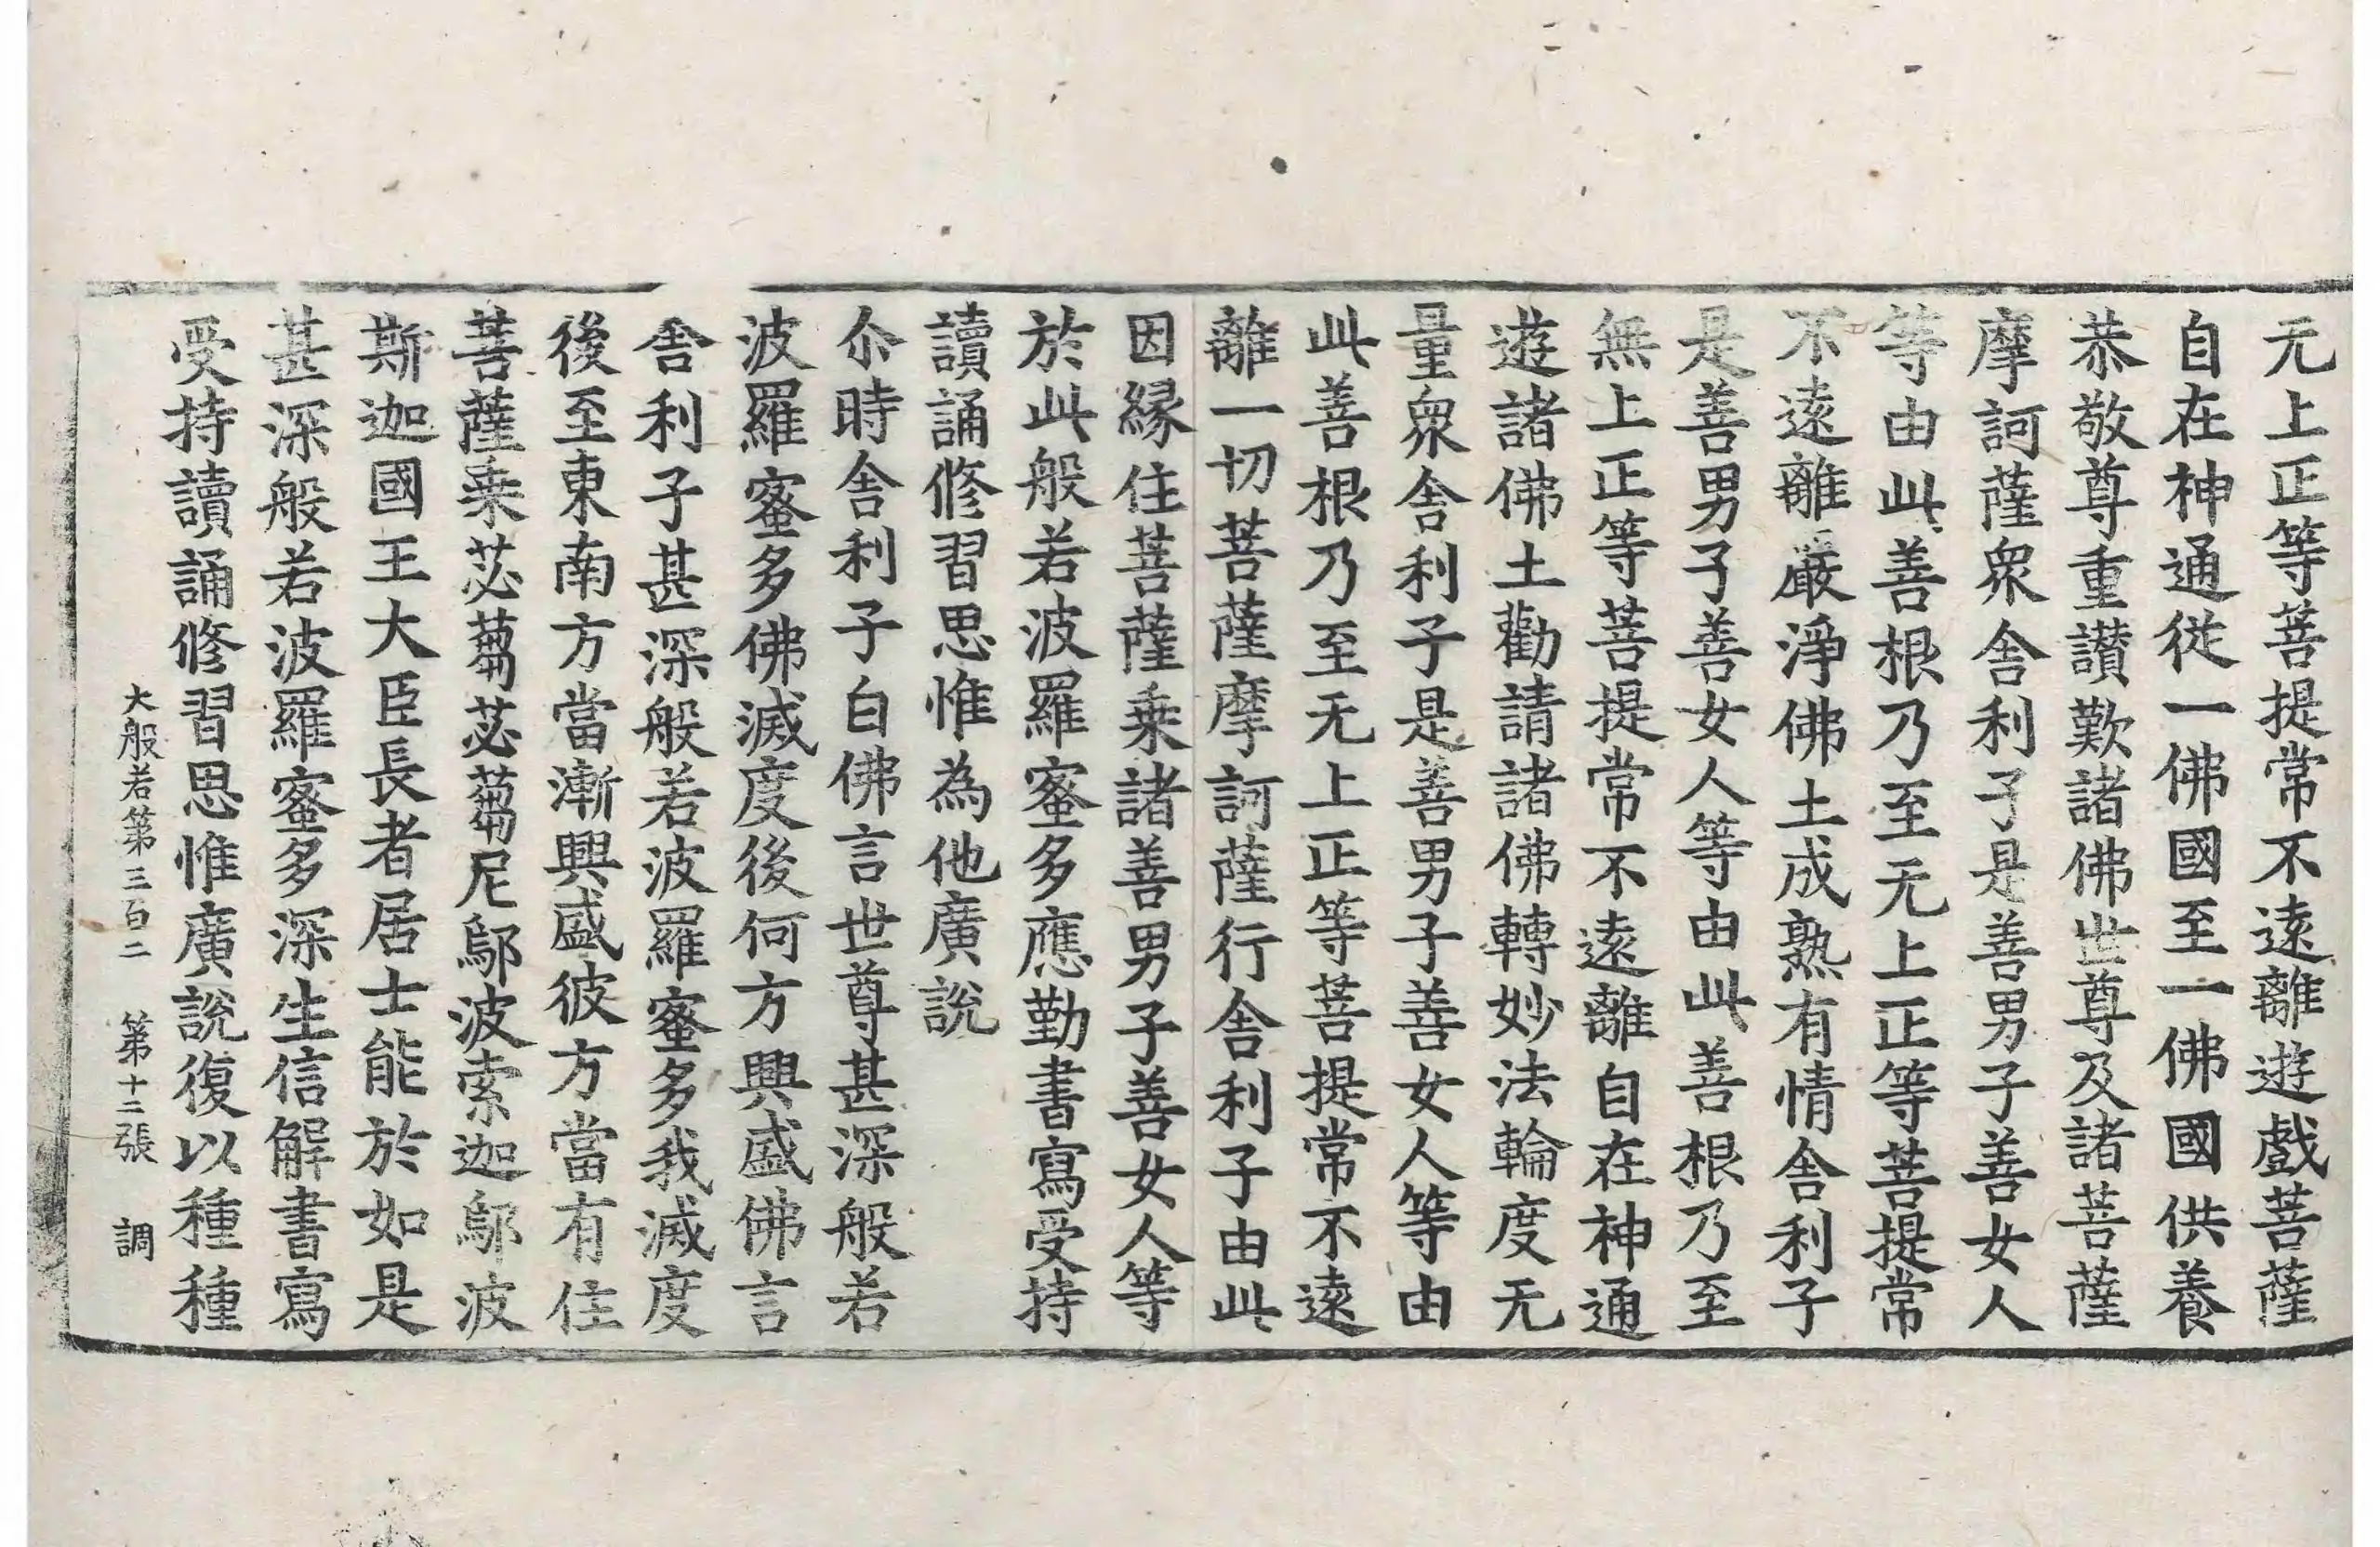 无上正等菩提常不遠離遊戲菩薩
自在神通從一佛國至一佛國供養
恭敬尊重讃歎諸佛世尊及諸菩薩
摩訶薩衆舎利子是善男子善女人
等由此善根乃至无上正等菩提常
不遠離嚴淨佛土成熟有情舎利子
是善男子善女人等由此善根乃至
無上正等菩提常不遠離自在神通
遊諸佛土勸請諸佛轉妙法輪度无
量衆舎利子是善男子善女人等由
此善根乃至无上正等菩提常不遠
離一切菩薩摩訶薩行舎利子由此
因縁住菩薩乗諸善男子善女人等
於此般若波羅蜜多應勤書寫受持
讀誦修習思惟為他廣說
尒時舎利子白佛言世尊甚深般若
波羅蜜多佛滅度後何方興盛佛言
舎利子甚深般若波羅蜜多我滅度
後至東南方當漸興盛彼方當有住
菩薩乗苾蒭苾蒭尼鄔波索迦鄔波
斯迦國王大臣長者居士能於如是
甚深般若波羅蜜多深生信解書寫
受持讀誦修習思惟廣說復以種種
大般若第三百二 第十二張 調